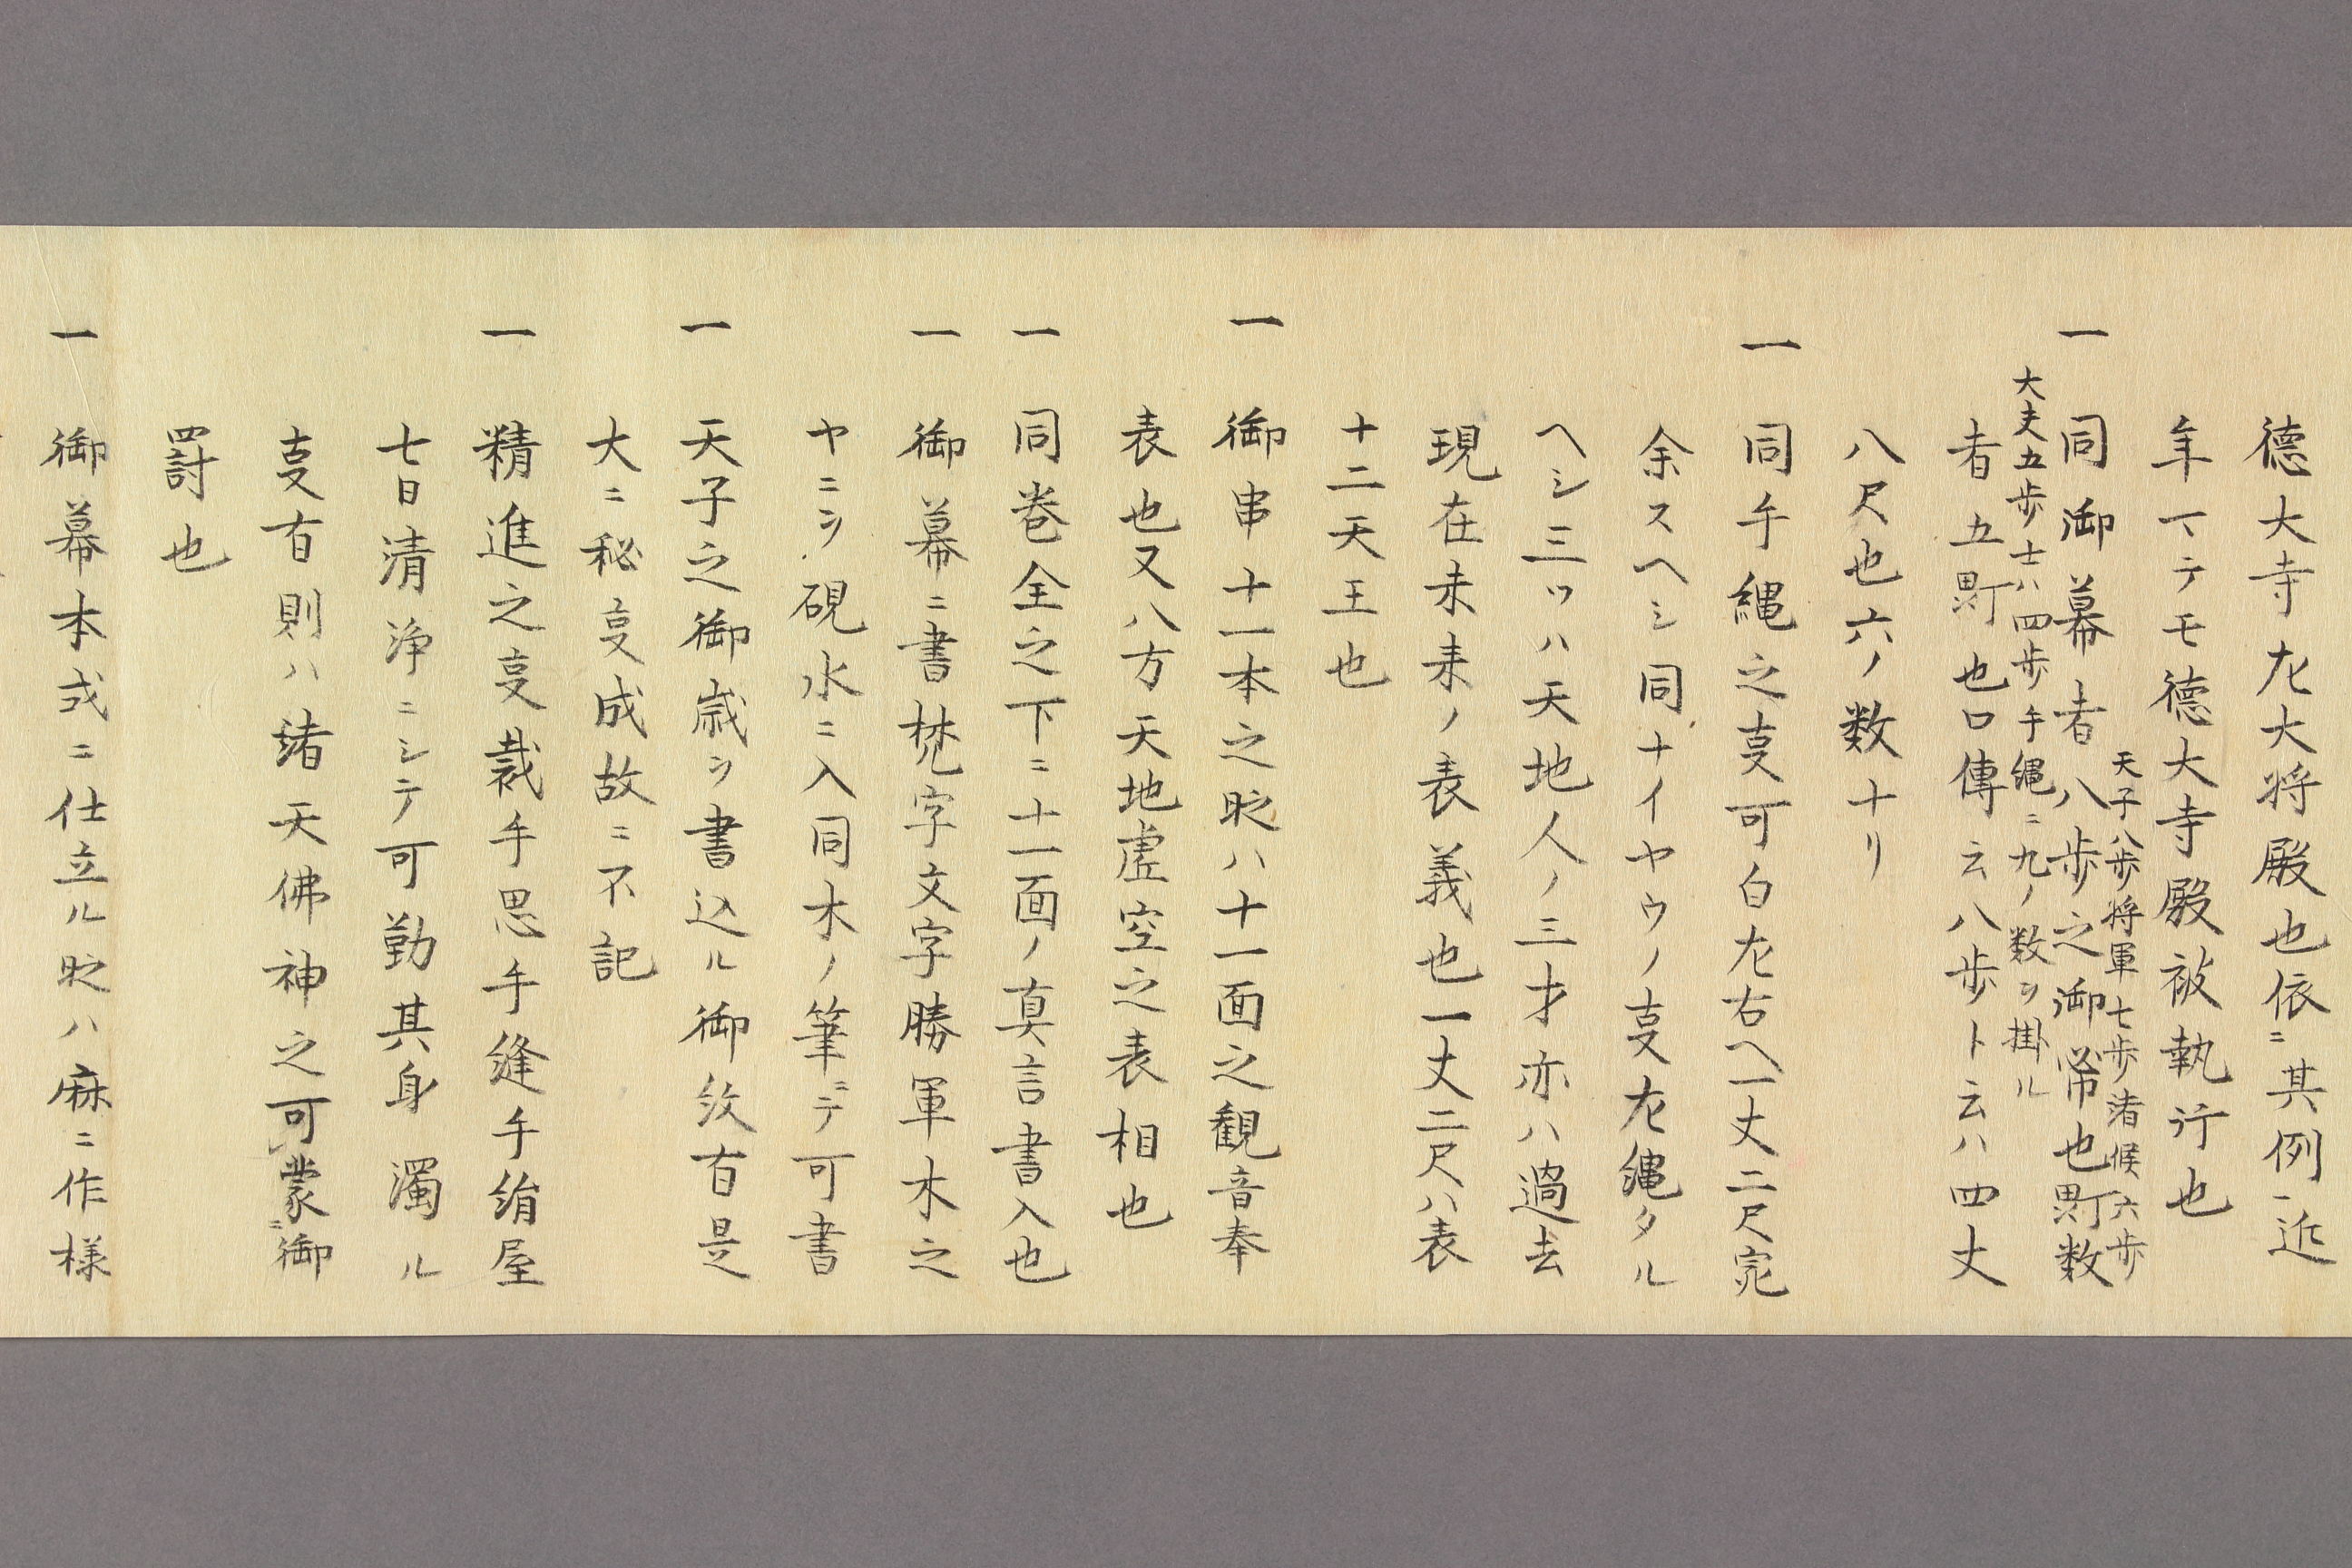 徳大寺左大将殿也依ニ其例一近
年マテモ徳大寺殿被執行也
天子八歩将軍七歩諸候六歩
一 同御幕者八歩之御幕也町数
大夫五歩士ハ四歩手縄ニ九ノ数ヲ掛ル
者五町也口傳云八歩ト云ハ四丈
八尺也六ノ数ナリ
一 同手縄之叓可白左右ヘ一丈二尺宛
余スヘシ同ナイヤウノ叓左縄タル
ヘシ三ツハ天地人ノ三才亦ハ過去
現在未来ノ表義也一丈二尺ハ表
十二天王也
一 御串十一本之時ハ十一面之観音奉
表也又八方天地虚空之表相也
一 同巻全之下ニ十一面ノ真言書入也
一 御幕ニ書梵字文字勝軍木之
ヤニヲ硯水ニ入同木ノ筆ニテ可書
一 天子之御歳ヲ書込ル御紋有是
大ニ秘叓成故ニ不記
一 精進之叓裁手思手縫手絹屋
七日清浄ニシテ可勤其身濁ル
叓有則ハ諸天佛神之可蒙ニ御
罰也
一 御幕本式ニ仕立ル時ハ麻ニ作様